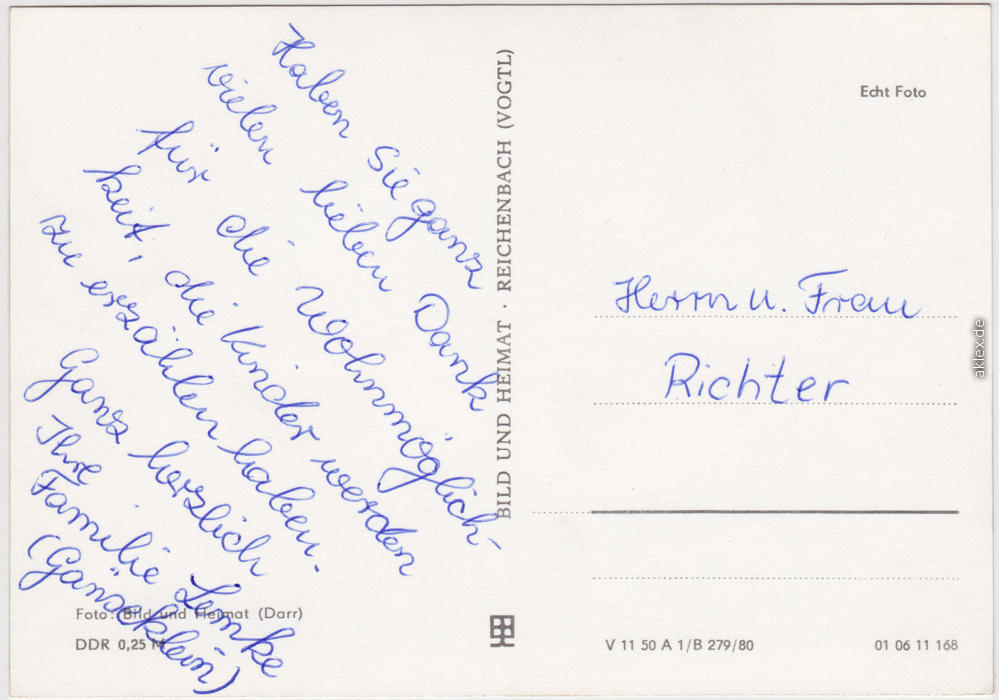 Haben Sie ganz
vielen lieben Dank
für die Wohnmöglich-
keit, die Kinder werden
zu erzählen haben.
Ganz herzlich
Ihre
Familie Lemke
(Gänseklein)
Foto: Bild und Heimat (Darr)
DDR 0,25 M
BILD UND HEIMAT · REICHENBACH (VOGTL)
Echt Foto
Herrn u. Frau
Richter
V 11 50 A 1/B 279/80
01 06 11 168
aklex.de